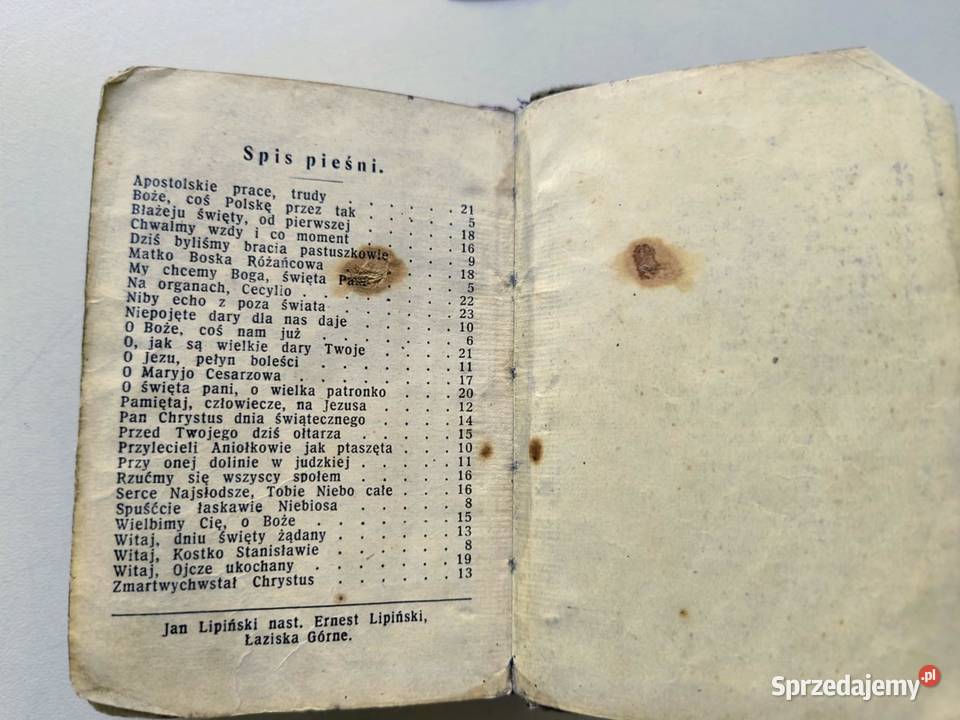 Spis pieśni.
Apostolskie prace, trudy . . . . . . 21
Boże, coś Polskę przez tak . . . . . 5
Błażeju święty, od pierwszej . . . . 18
Chwalmy wzdy i co moment . . . . 16
Dziś byliśmy bracia pastuszkowie . . 9
Matko Boska Różańcowa . . . . 18
My chcemy Boga, święta . . . 5
Na organach, Cecylio . . . . . . . 22
Niby echo z poza świata . . . . . . 23
Niepojęte dary dla nas daje . . . . . 10
O Boże, coś nam już . . . . . . . 6
O, jak są wielkie dary Twoje . . . . 21
O Jezu, pełyn boleści . . . . . . . 11
O Maryjo Cesarzowa . . . . . . . . 17
O święta pani, o wielka patronko . . . 20
Pamiętaj, człowiecze, na Jezusa . . . . 12
Pan Chrystus dnia świątecznego . . . . 14
Przed Twojego dziś ołtarza . . . . . 15
Przylecieli Aniołkowie jak ptaszęta . . . 10
Przy onej dolinie w judzkiej . . . . . 11
Rzućmy się wszyscy społem . . . . . 16
Serce Najsłodsze, Tobie Niebo całe . . . 16
Spuśćcie łaskawie Niebiosa . . . . . 8
Wielbimy Cię, o Boże . . . . . . . 15
Witaj, dniu święty żądany . . . . . . 13
Witaj, Kostko Stanisławie . . . . . . 8
Witaj, Ojcze ukochany . . . . . . . 19
Zmartwychwstał Chrystus . . . . . . 13
Jan Lipiński nast. Ernest Lipiński,
Łaziska Górne.
Sprzedajemy.pl